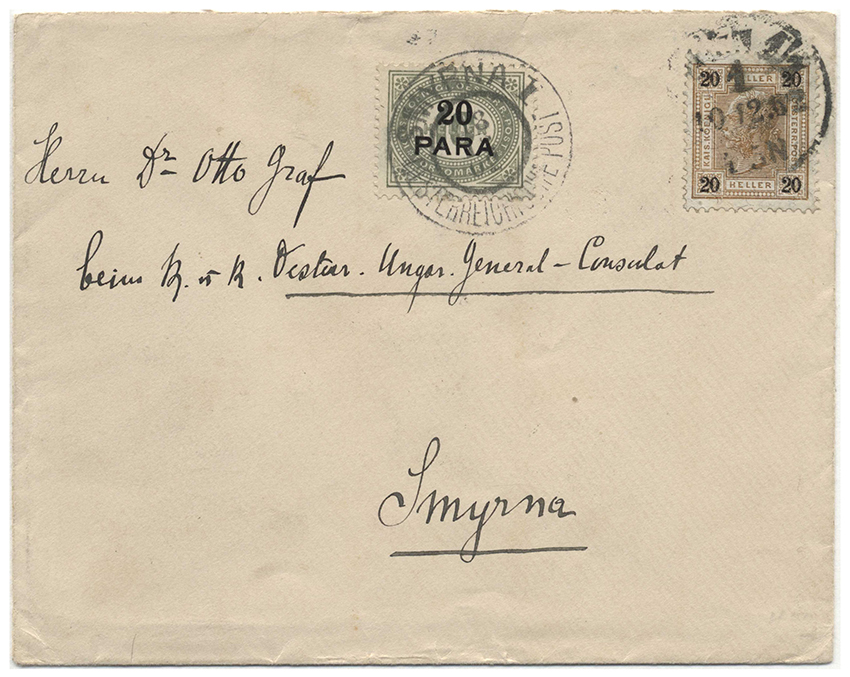 20
PARA
ÖSTERREICHISCHE POST
20 HELLER 20
KAIS. KOENIGL.
1
10.12.
WIEN
20 HELLER 20
Herrn Dr Otto Graf
beim K. u K. Oesterr. Ungar. General-Consulat
Smyrna